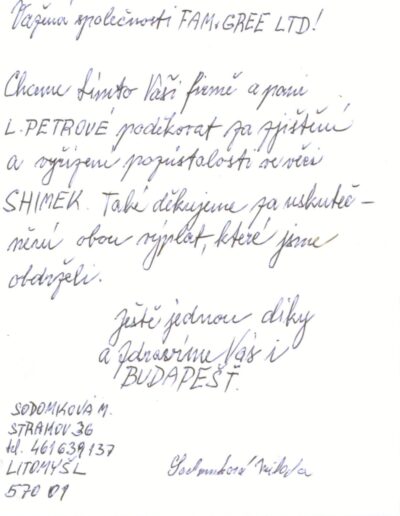 Vážená společnosti FAM.GREE LTD!
Chceme tímto Vaší firmě a paní
L. PETROVÉ poděkovat za zjištění
a vyřízení pozůstalosti ve věci
SHIMEK. Také děkujeme za uskuteč-
nění obou výplat, které jsme
obdrželi.
Ještě jednou díky
a zdravíme Vás i
BUDAPEŠŤ.
SODOMKOVÁ M.
STRAKOV 36
tel. 461639137
LITOMYŠL
570 01
Sodomková